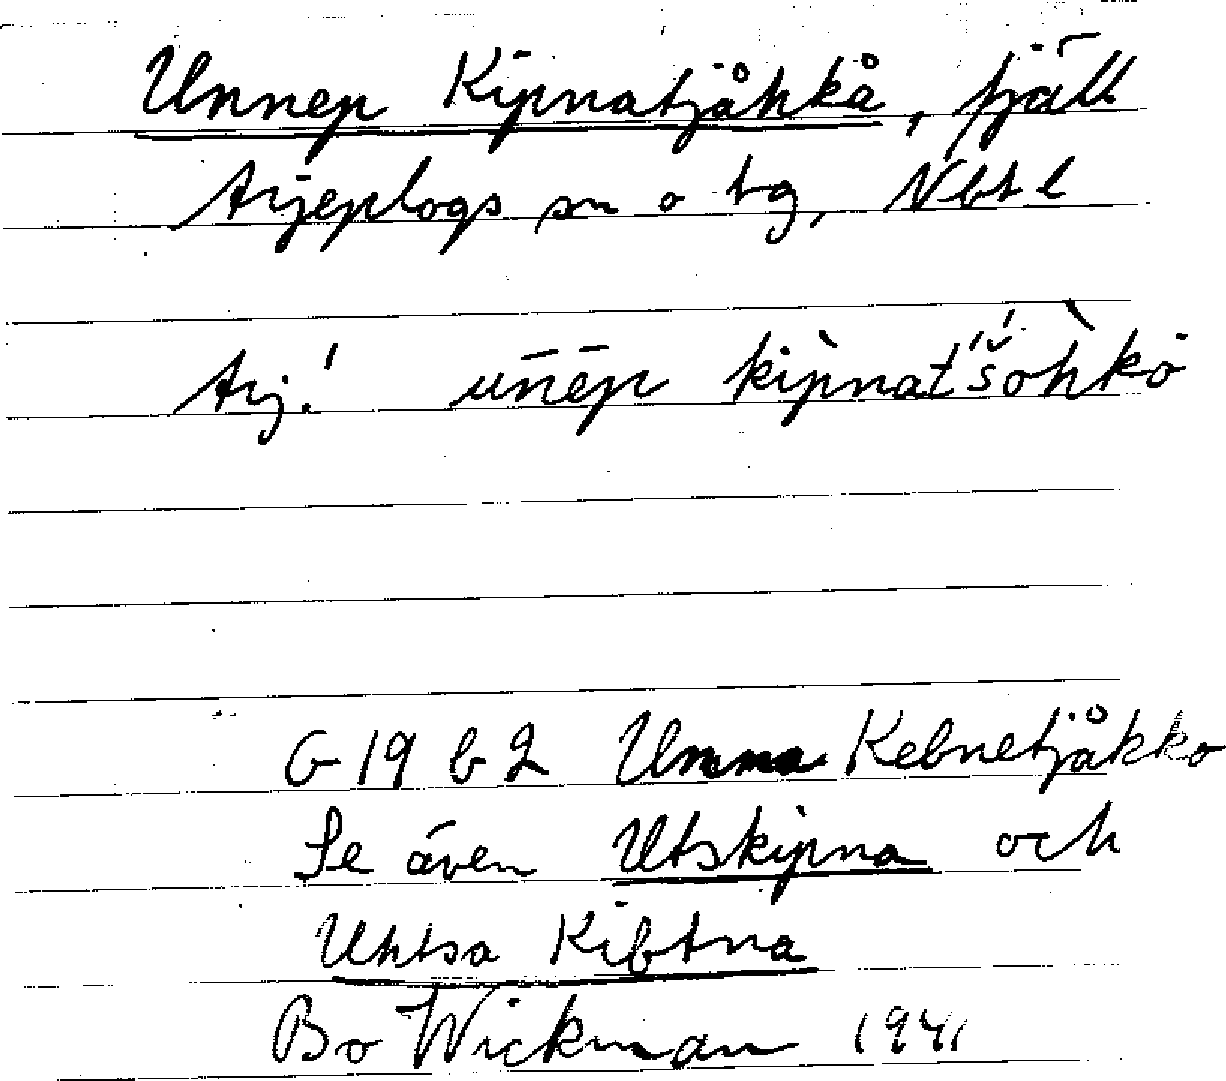 Unnep Kipnatjåhkå, fjäll
Arjeplogs sn o tg, Nbt l
Arj. ūnēp kìpnat'šòhkò
G 19 b 2 Unna Kebnetjåkko
Se även Utskipna och
Uhtsa Kibtna
Bo Wickman 1941